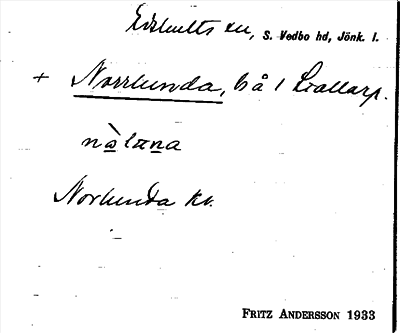 Edshults sn, S. Vedbo hd, Jönk. l.
+ Norrlunda, bå i Lallarp.
nàlæna
Norlunda kv.
FRITZ ANDERSSON 1933